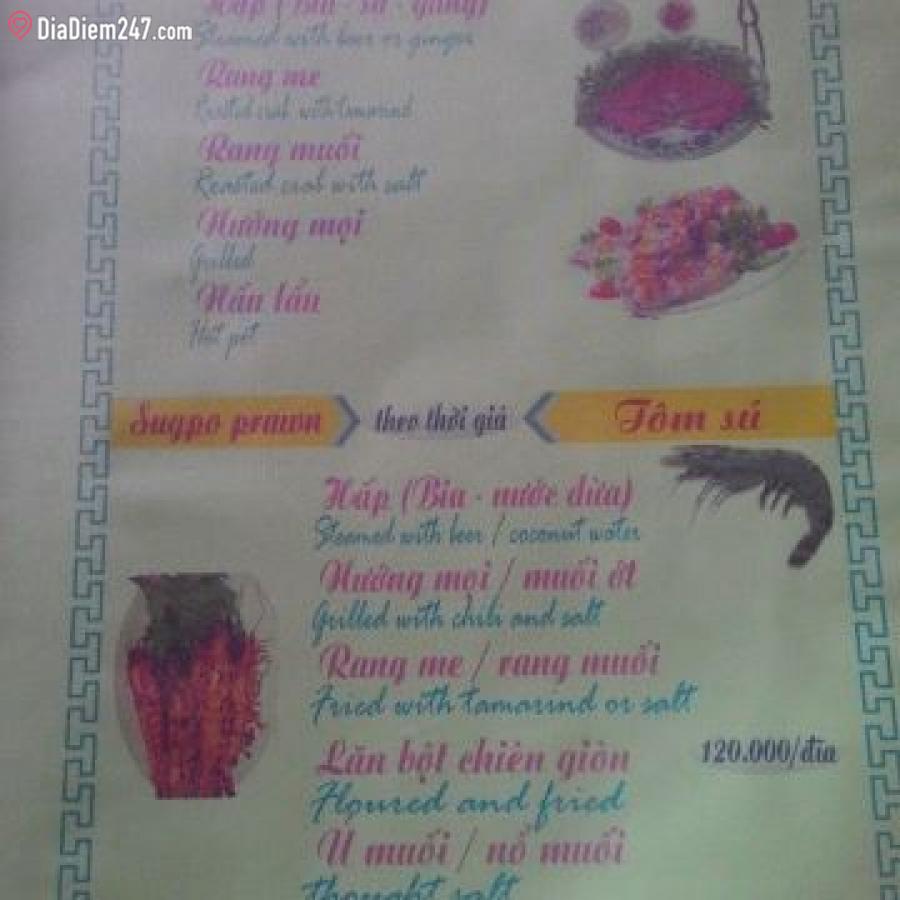 DiaDiem247.com
Hấp (Bia - sả - gừng)
Steamed with beer or ginger
Rang me
Roasted crab with tamarind
Rang muối
Roasted crab with salt
Nướng mọi
Grilled
Nấu lẩu
Hot pot
Sugpo prawn theo thời giá Tôm sú
Hấp (Bia - nước dừa)
Steamed with beer / coconut water
Nướng mọi / muối ớt
Grilled with chili and salt
Rang me / rang muối
Fried with tamarind or salt
Lăn bột chiên giòn 120.000/đĩa
Floured and fried
Ủ muối / nổ muối
thought salt